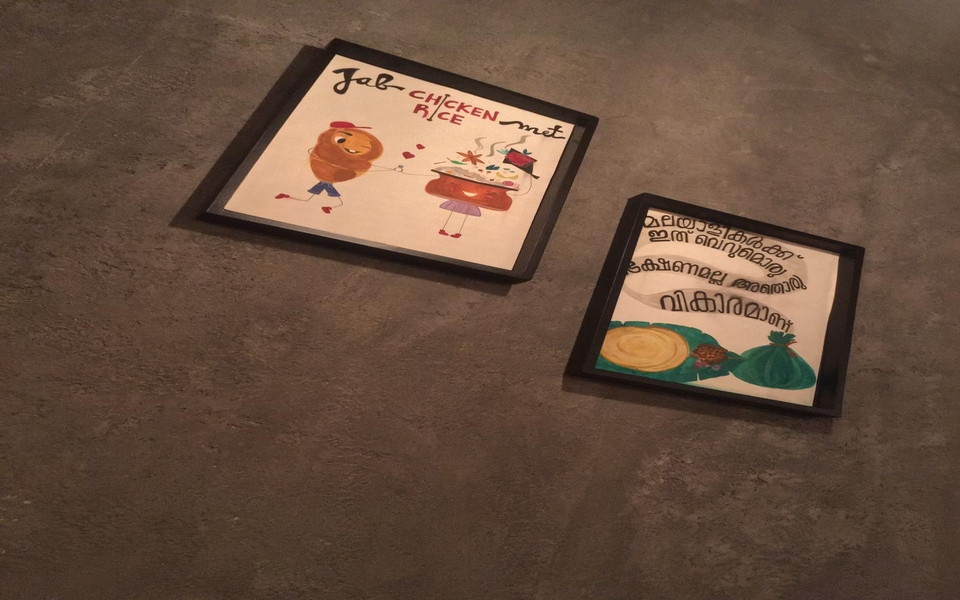 Jab
CHICKEN
RICE
met
മലയാളികൾക്ക്
ഇത് വെറുമൊരു
ഭക്ഷണമല്ല അതൊരു
വികാരമാണ്